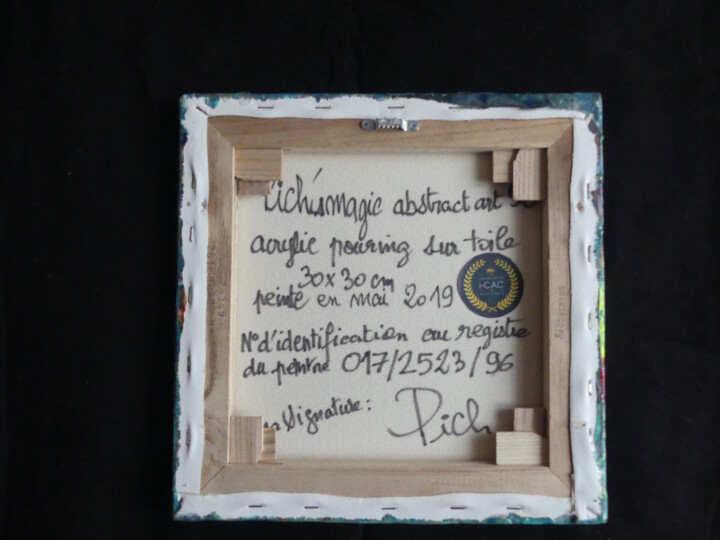 Pich'smagic abstract art
acrylic pouring sur toile
30x30 cm
peinte en mai 2019
i-CAC
N° d'identification au registre
du peintre 017/2523/96
Signature: Pich